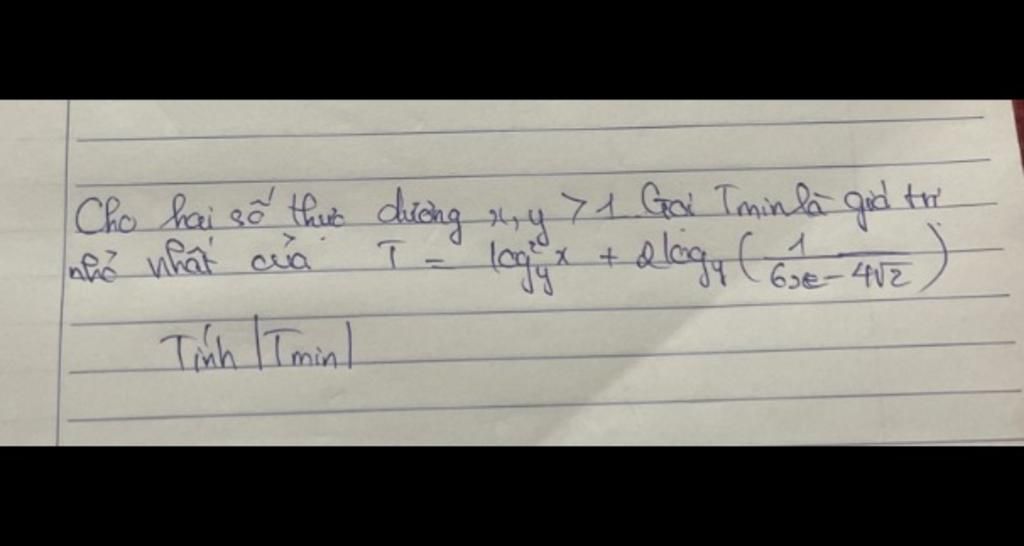 Cho hai số thực dương x, y > 1 Gọi Tmin là giá trị
nhỏ nhất của T = log²_y x + 2log_y (1/(6x - 4√2))
Tính |Tmin|